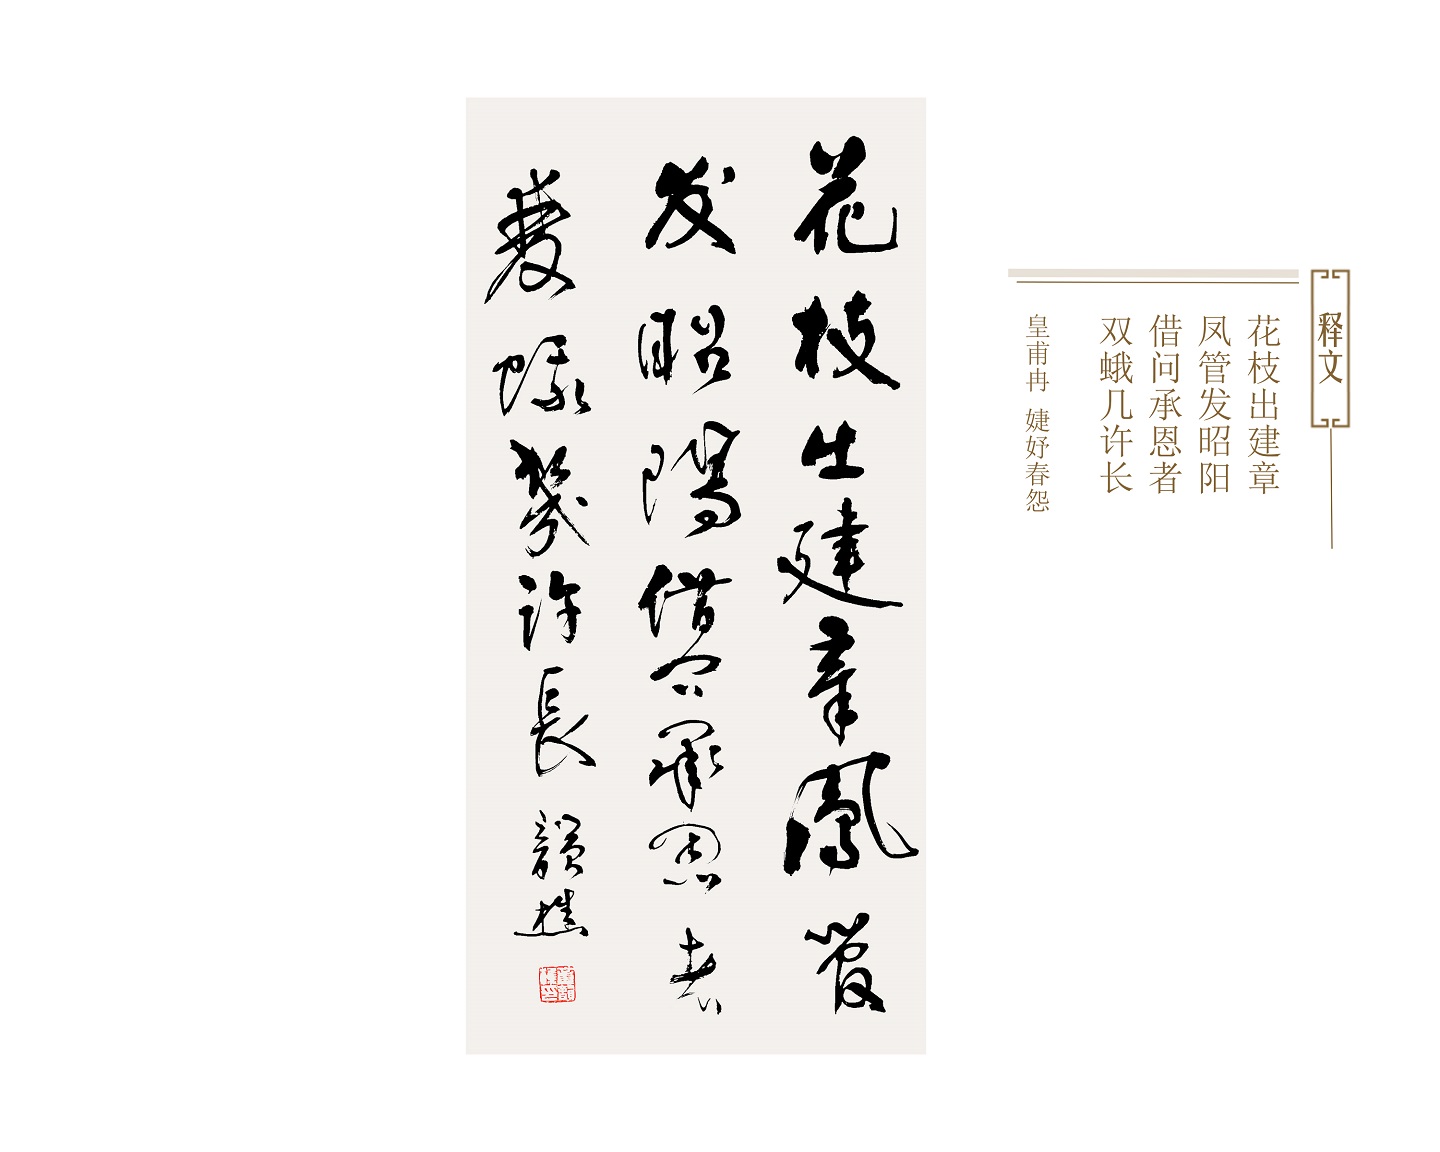 释文
花枝出建章
凤管发昭阳
借问承恩者
双蛾几许长
皇甫冉 婕妤春怨
花枝出建章鳳管
发昭陽借问承恩者
雙蛾幾许長 韻樵